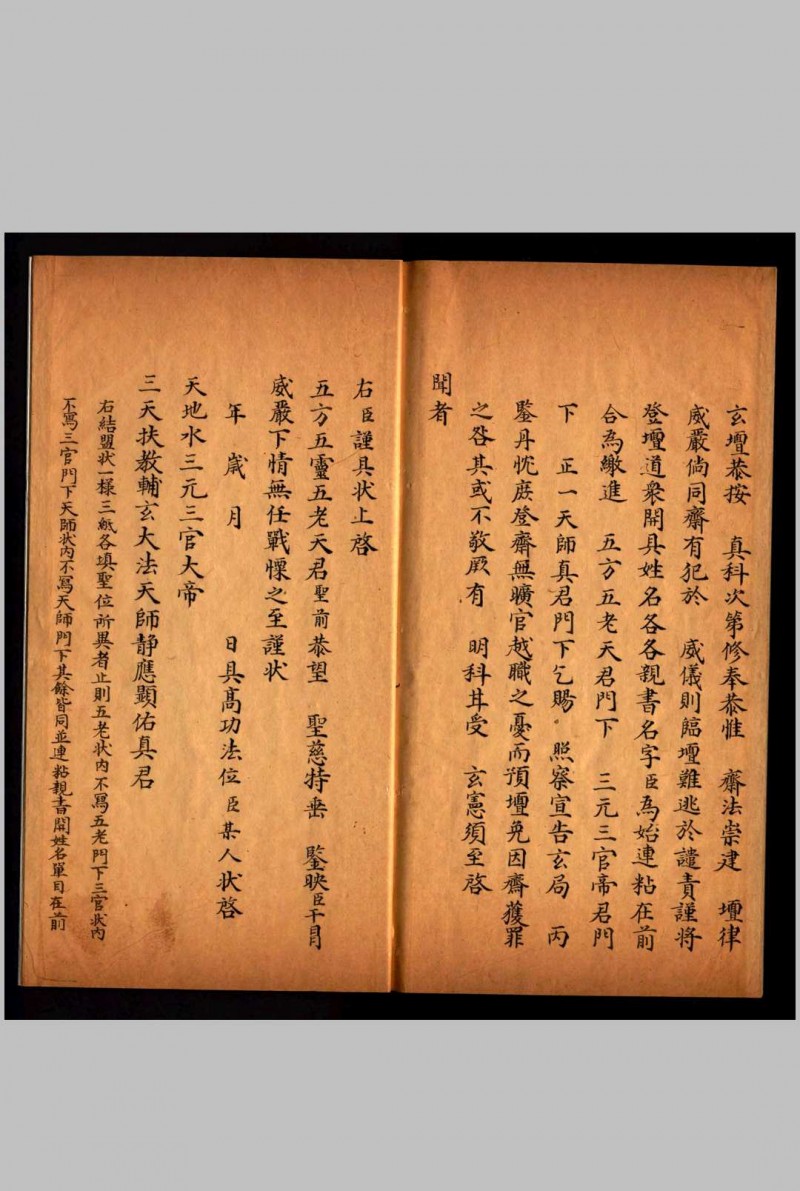 玄壇恭按　真科次第修奉恭惟　齋法崇建　壇律
威嚴倘同齋有犯於　威儀則臨壇難逃於譴責謹將
登壇道衆開具姓名各各親書名字臣為始連粘在前
合為繳進　五方五老天君門下　三元三官帝君門
下　正一天師真君門下乞賜。照察宣告玄局　丙
鑒丹忱庶登齋無曠官越職之憂而預壇免因齋獲罪
之咎其或不敬厥有　明科甘受　玄憲須至啓
聞者
右臣謹具狀上啓
五方五靈五老天君聖前恭望　聖慈特垂　鑒映臣干冒
威嚴下情無任戰慄之至謹狀
年　歲　月　　　日具高功法位臣某人狀啓
天地水三元三官大帝
三天扶教輔玄大法天師静應顯佑真君
右結盟狀一樣三紙各填聖位所異者止則五老狀内不寫五老門下三官狀内
不寫三官門下天師狀内不寫天師門下其餘皆同並連粘親書開姓名單目在前